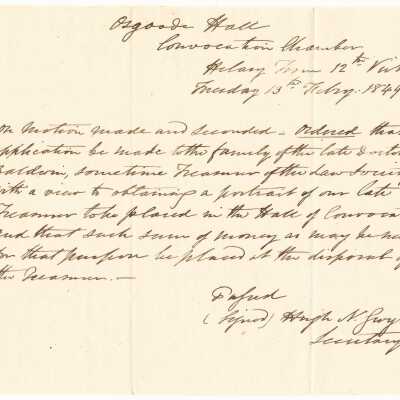 Osgoode Hall
Convocation Chamber
Hilary Term 12th Vict
Tuesday 13th Feby. 1849
On motion made and seconded – Ordered that
application be made to the family of the late Doctor
Baldwin, sometime Treasurer of the Law Socie
with a view to obtaining a portrait of our late
Treasurer to be placed in the Hall of Convoca
and that such sum of money as may be ne
for that purpose be placed at the disposal of
the Treasurer. —
Passed
(Signed) Hugh N. Gwy
Secretary